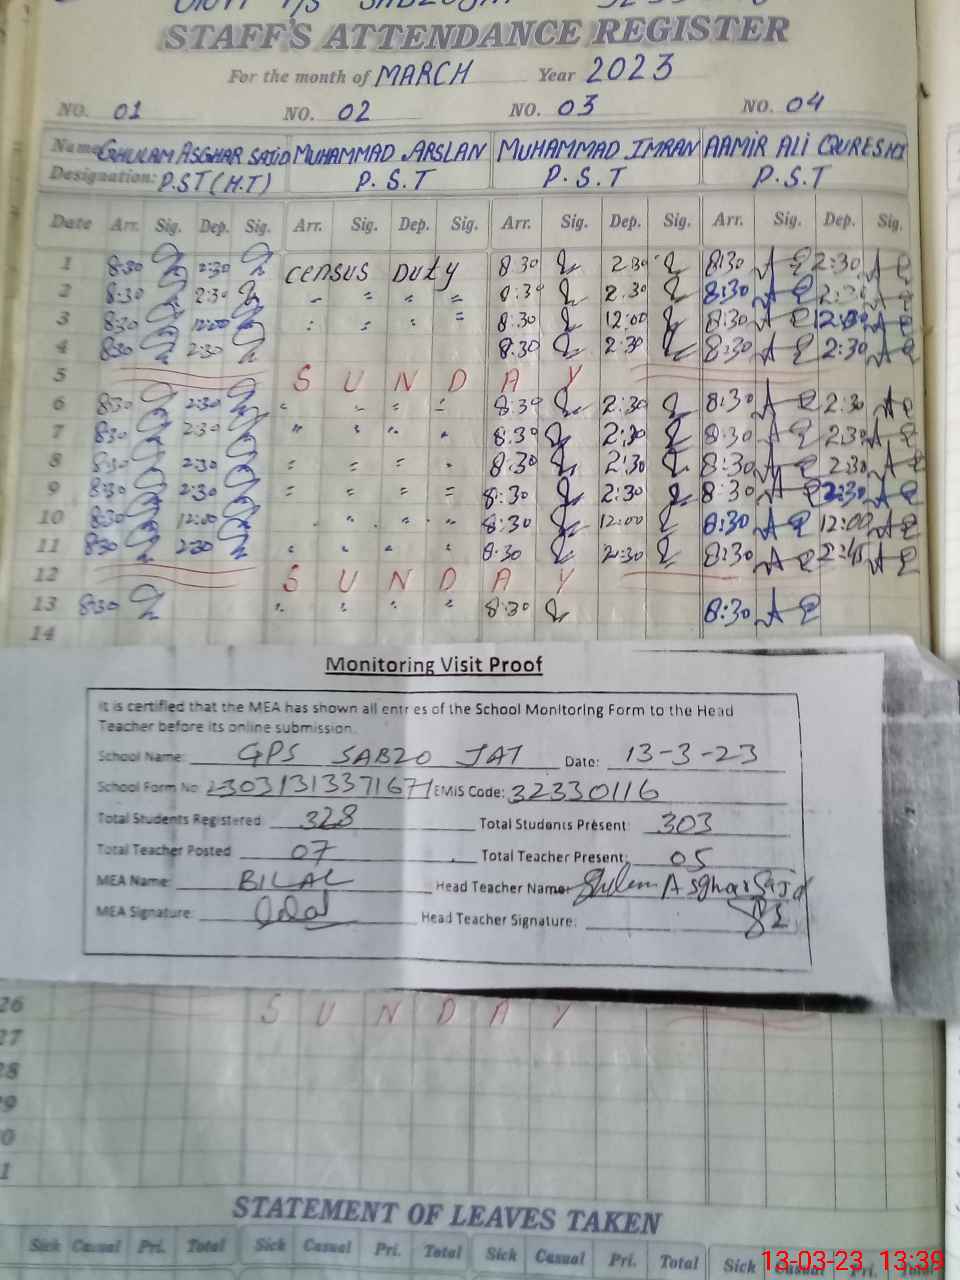 STAFF'S ATTENDANCE REGISTER
For the month of MARCH Year 2023
NO. 01 NO. 02 NO. 03 NO. 04
Name GHULAM ASGHAR SAJID MUHAMMAD ARSLAN MUHAMMAD IMRAN AAMIR ALI QOURESHI
Designation: P.ST (H.T) P.S.T P.S.T P.S.T
Date Arr. Sig. Dep. Sig. Arr. Sig. Dep. Sig. Arr. Sig. Dep. Sig. Arr. Sig. Dep. Sig.
1 8:30 2:30 Census Duty 8:30 2:30 8:30 2:30
2 8:30 2:30 " " " " 8:30 2:30 8:30 2:30
3 8:30 12:00 " " " " 8:30 12:00 8:30 12:00
4 8:30 2:30 8:30 2:30 8:30 2:30
5 S U N D A Y
6 8:30 2:30 " " " " 8:30 2:30 8:30 2:30
7 8:30 2:30 " " " " 8:30 2:30 8:30 2:30
8 8:30 2:30 " " " " 8:30 2:30 8:30 2:30
9 8:30 2:30 " " " " 8:30 2:30 8:30 2:30
10 8:30 12:00 " " " " 8:30 12:00 8:30 12:00
11 8:30 2:30 " " " " 8:30 2:30 8:30 2:45
12 S U N D A Y
13 8:30 " " " " 8:30 8:30
14
Monitoring Visit Proof
It is certified that the MEA has shown all entries of the School Monitoring Form to the Head
Teacher before its online submission.
School Name: GPS SABZO JAT Date: 13-3-23
School Form No: 23031313371671 EMIS Code: 32330116
Total Students Registered 328 Total Students Present: 303
Total Teacher Posted 07 Total Teacher Present: 05
MEA Name: BILAL Head Teacher Name: Ghulam Asghar Sajd
MEA Signature: Head Teacher Signature:
26 S U N D A Y
27
28
29
30
31
STATEMENT OF LEAVES TAKEN
Sick Casual Pri. Total Sick Casual Pri. Total Sick Casual Pri. Total Sick Casual Pri. Total
13-03-23 13:39